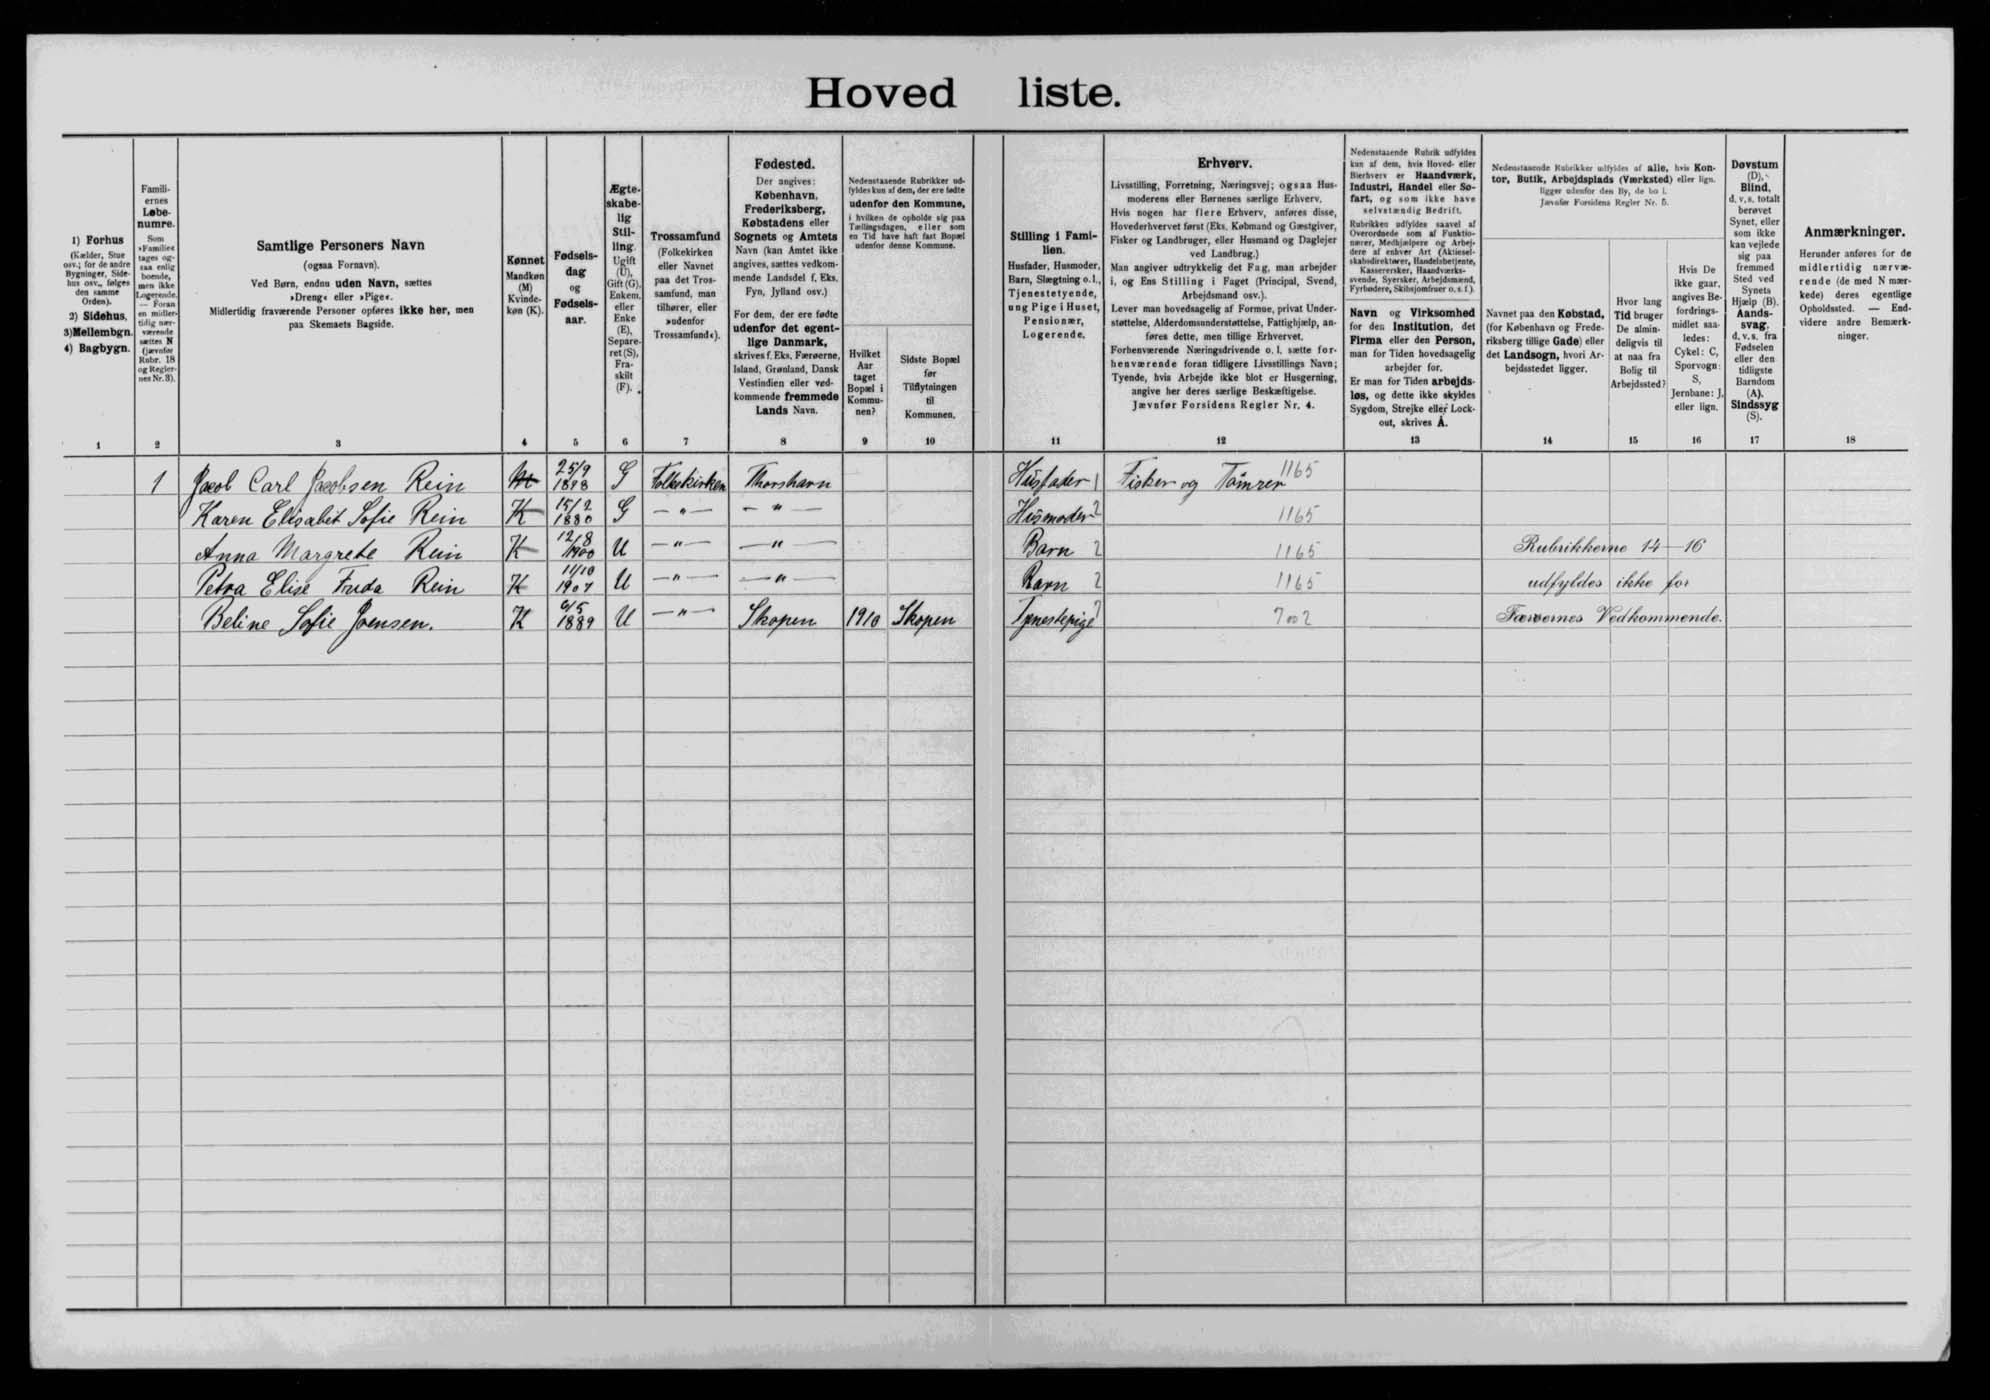 Hoved liste.
1) Forhus
(Kælder, Stue
osv.; for de andre
Bygninger, Side-
hus osv., følges
den samme
Orden).
2) Sidehus,
3) Mellembgn.
4) Bagbygn.
1
Famili-
ernes
Løbe-
numre.
Som
»Familie«
tages og-
saa enlig
boende,
men ikke
Logerende.
— Foran
en midler-
tidig nær-
værende
sættes N
(jævnfør
Rubr. 18
og Regler-
nes Nr. 3).
2
Samtlige Personers Navn
(ogsaa Fornavn).
Ved Børn, endnu uden Navn, sættes
»Dreng« eller »Pige«.
Midlertidig fraværende Personer opføres ikke her, men
paa Skemaets Bagside.
3
Kønnet
Mandkøn
(M)
Kvinde-
køn (K).
4
Fødsels-
dag
og
Fødsels-
aar.
5
Ægte-
skabe-
lig
Stil-
ling.
Ugift
(U),
Gift (G),
Enkem.
eller
Enke
(E),
Separe-
ret (S),
Fra-
skilt
(F).
6
Trossamfund
(Folkekirken
eller Navnet
paa det Tros-
samfund, man
tilhører, eller
»udenfor
Trossamfund«).
7
Fødested.
Der angives:
København,
Frederiksberg,
Købstadens eller
Sognets og Amtets
Navn (kan Amtet ikke
angives, sættes vedkom-
mende Landsdel f. Eks.
Fyn, Jylland osv.)
For dem, der ere fødte
udenfor det egent-
lige Danmark,
skrives f. Eks. Færøerne,
Island, Grønland, Dansk
Vestindien eller ved-
kommende fremmede
Lands Navn.
8
Nedenstaaende Rubrikker ud-
fyldes kun af dem, der ere fødte
udenfor den Kommune,
i hvilken de opholde sig paa
Tællingsdagen, eller som
en Tid have haft fast Bopæl
udenfor denne Kommune.
Hvilket
Aar
taget
Bopæl i
Kommu-
nen?
9
Sidste Bopæl
før
Tilflytningen
til
Kommunen.
10
Stilling i Fami-
lien.
Husfader, Husmoder,
Barn, Slægtning o. l.,
Tjenestetyende,
ung Pige i Huset,
Pensionær,
Logerende.
11
Erhverv.
Livsstilling, Forretning, Næringsvej; ogsaa Hus-
moderens eller Børnenes særlige Erhverv.
Hvis nogen har flere Erhverv, anføres disse,
Hovederhvervet først (Eks. Købmand og Gæstgiver,
Fisker og Landbruger, eller Husmand og Daglejer
ved Landbrug.)
Man angiver udtrykkelig det Fag, man arbejder
i, og Ens Stilling i Faget (Principal, Svend,
Arbejdsmand osv.).
Lever man hovedsagelig af Formue, privat Under-
støttelse, Alderdomsunderstøttelse, Fattighjælp, an-
føres dette, men tillige Erhvervet.
Forhenværende Næringsdrivende o. l. sætte for-
henværende foran tidligere Livsstillings Navn;
Tyende, hvis Arbejde ikke blot er Husgerning,
angive her deres særlige Beskæftigelse.
Jævnfør Forsidens Regler Nr. 4.
12
Nedenstaaende Rubrik udfyldes
kun af dem, hvis Hoved- eller
Bierhverv er Haandværk,
Industri, Handel eller Sø-
fart, og som ikke have
selvstændig Bedrift.
Rubrikken udfyldes saavel af
Overordnede som af Funktio-
nærer, Medhjælpere og Arbej-
dere af enhver Art (Aktiesel-
skabsdirektører, Handelsbetjente,
Kassererske, Haandværks-
svende, Syersker, Arbejdsmænd,
Fyrbødere, Skibsjomfruer o. s. f.).
Navn og Virksomhed
for den Institution, det
Firma eller den Person,
man for Tiden hovedsagelig
arbejder for.
Er man for Tiden arbejds-
løs, og dette ikke skyldes
Sygdom, Strejke eller Lock-
out, skrives A.
13
Nedenstaaende Rubrikker udfyldes af alle, hvis Kon-
tor, Butik, Arbejdsplads (Værksted) eller lign.
ligger udenfor den By, de bo i.
Jævnfør Forsidens Regler Nr. 5.
Navnet paa den Købstad,
(for København og Frede-
riksberg tillige Gade) eller
det Landsogn, hvori Ar-
bejdsstedet ligger.
14
Hvor lang
Tid bruger
De almin-
deligvis til
at naa fra
Bolig til
Arbejdssted?
15
Hvis De
ikke gaar,
angives Be-
fordrings-
midlet saa-
ledes:
Cykel: C,
Sporvogn:
S,
Jernbane: J,
eller lign.
16
Døvstum
(D),
Blind,
d. v. s. totalt
berøvet
Synet, eller
som ikke
kan vejlede
sig paa
fremmed
Sted ved
Synets
Hjælp (B).
Aands-
svag,
d. v. s. fra
Fødselen
eller den
tidligste
Barndom
(A).
Sindssyg
(S).
17
Anmærkninger.
Herunder anføres for de
midlertidig nærvæ-
rende (de med N mær-
kede) deres egentlige
Opholdssted. — End-
videre andre Bemærk-
ninger.
18
1 Jacob Carl Jacobsen Rein M 25/9 1878 G Folkekirken Thorshavn Husfader 1 Fisker og Tømrer 1165
Karen Elisabet Sofie Rein K 15/2 1880 G —"— —"— Husmoder 2 1165
Anna Margrete Rein K 12/8 1900 U —"— —"— Barn 2 1165 Rubrikkerne 14—16
Petra Elise Frida Rein K 11/10 1907 U —"— —"— Barn 2 1165 udfyldes ikke for
Beline Sofie Joensen. K 1889 U —"— Skopen 1910 Skopen Tjenestepige 7002 Færøernes Vedkommende.